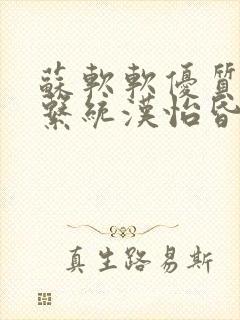 蘇軟軟優質
繫統漢怡昏
真生路易斯